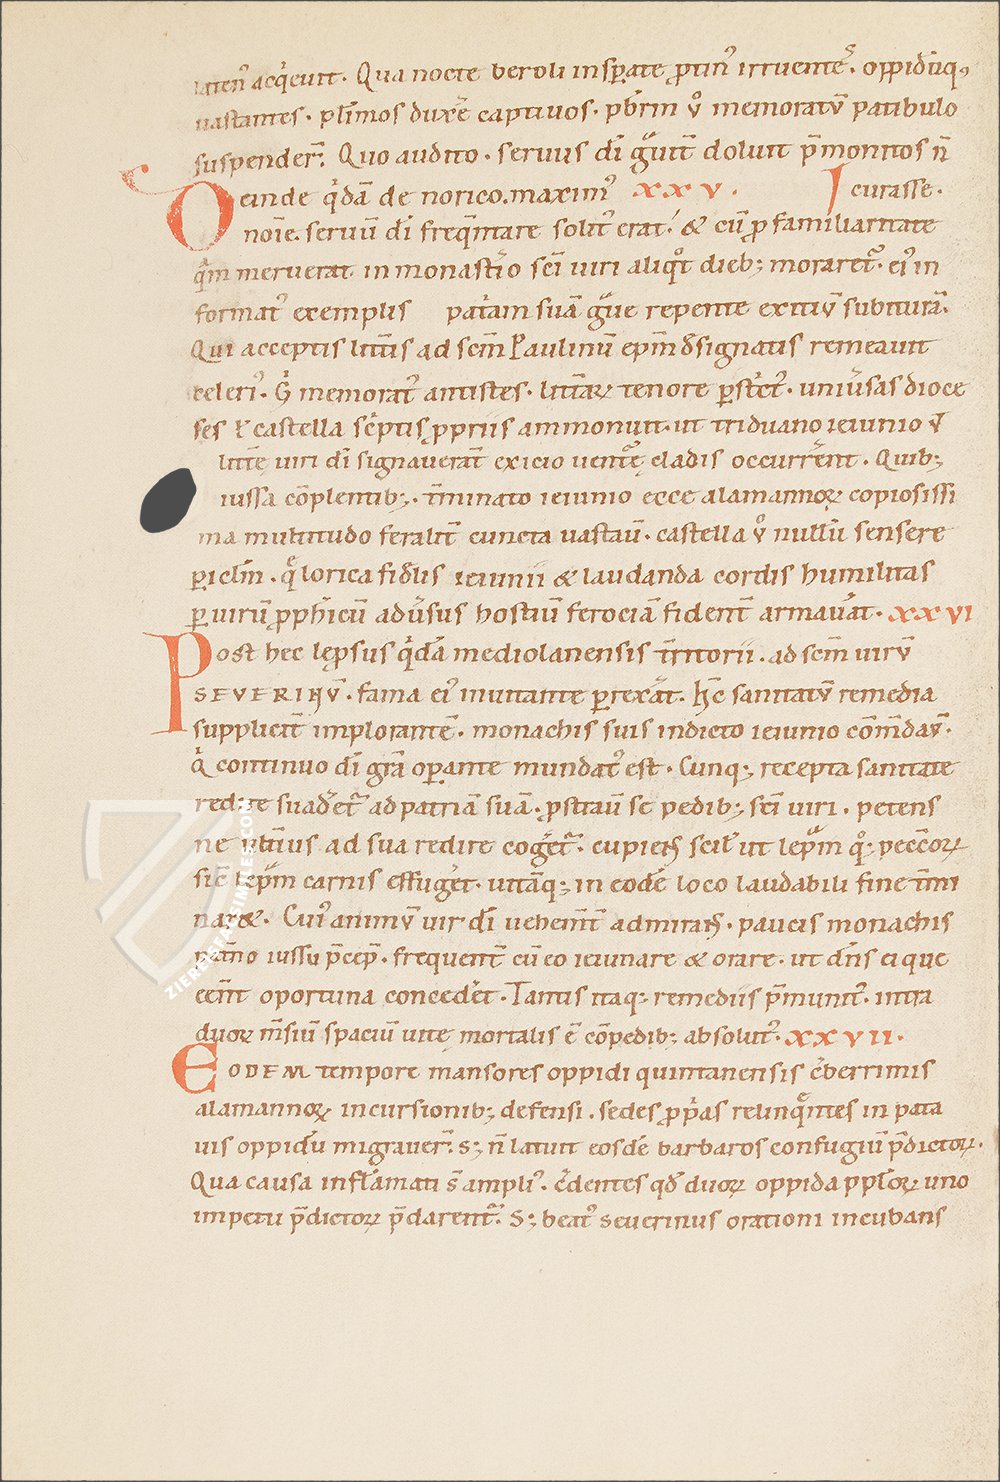 laten̄ acq̇eurt. Qua nocte heroli insp̱ate p̱tin᷒ irruente᷒. oppidūq,
uastantes. pl̄imos duxe᷒ captiuos. pb̄rm v̊ memoratū patibulo
suspender̄. Quo audito. seruus dī g̊uit̄ doluit p̄monitos n̄
einde q̇dā de norico. maxim᷒ xxv. curasse.
noīe. seruū dī freq̄ntare solit᷒ erat. & cū p̱ familiaritate
q̄m meruerat. in monast̄io sc̄i uiri aliq̊t dieb; moraret᷒. ei᷒ in
format᷒ exemplis patͥam suā g̊ue repente exitiū subiturā.
Qui acceptis litt̄is ad sc̄m Paulinū ep̄m d̄signatis remeauit
celeri᷒. G͛ memorat᷒ antistes. litt̄arꝝ tenore p̱strict᷒. uniu̇sas dioce
ses s; castella sc̄ptis p̱priis ammonuit. ut triduano ieiunio v̄
litt̄ę uiri dī signauerat̄ exicio uentu᷒ę cladis occurrer̄ent. Quib;
iussa cōplentib;. t̄minato ieiunio ecce alamannoꝝ copiosissi
ma multitudo feralit̄ cuncta uastau̅. castella v̊ nullū sensere
p̱iclm̄. q̊ lorica fid̄lis ieiunii & laudanda cordis humilitas
p̱ uirū p̱phēticū adu̇sus hostiū ferociā fident̄ armau̇at. xxvi
Post hec lep̱sus q̇dā mediolanensis t̄rritorii. ad sc̄m uirū
SEVERINV̄. fama ei᷒ inuitante p̱rexat᷒. Hc̄ sanitatū remedia
supplicit̄ implorante᷒. monachis suis indicto ieiunio cōm̄dau᷒.
q̇ continuo dī grā op̱ante mundat᷒ est. Cunq; recepta sanitate
redire suad̄et᷒ ad patriā suā. p̱strau̅ se pedib; sc̄i uiri. petens
ne ult̄ius ad sua redire coget᷒. cupiens scil; ut lep̱m q̊; peccc̄oꝝ
sic̄ lep̱m carnis effuget. uitāq; in eode᷒ loco laudabili fine t̄mi
nar&. Cui᷒ animū uir dī uehem̄t̄ admirans. paucis monachis
n̄tano iussu p̄cep᷒. frequent̄ cū eo ieiunare & orare. ut dn̄s ei que
eent̄ oportuna conceder̄et. Tantis itaq; remediis p̄munit᷒. intra
duoꝝ m̄siū spaciū uitę mortalis ē cōpedib; absolut᷒. xxvii.
EODEM tempore mansores oppidi quintanensis c̄berrimis
alamannoꝝ incursionib; defensi. sedes p̱p̄as relinq̄ntes in pata
uis oppidū migrauer̄. S; n̄ latuit eosde᷒ barbaros confugiū p̄dictoꝝ.
Qua causa infl̄amati s̄ ampli᷒. c̄dentes qd̄ duoꝝ oppida pp̄l̄oꝝ uno
impetu p̄dictoꝝ p̄darent᷒. S; beat᷒ seuerinus orationi incubans